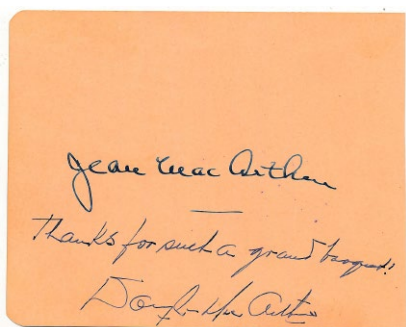 Jean MacArthur
Thanks for such a grand banquet!
Douglas MacArthur